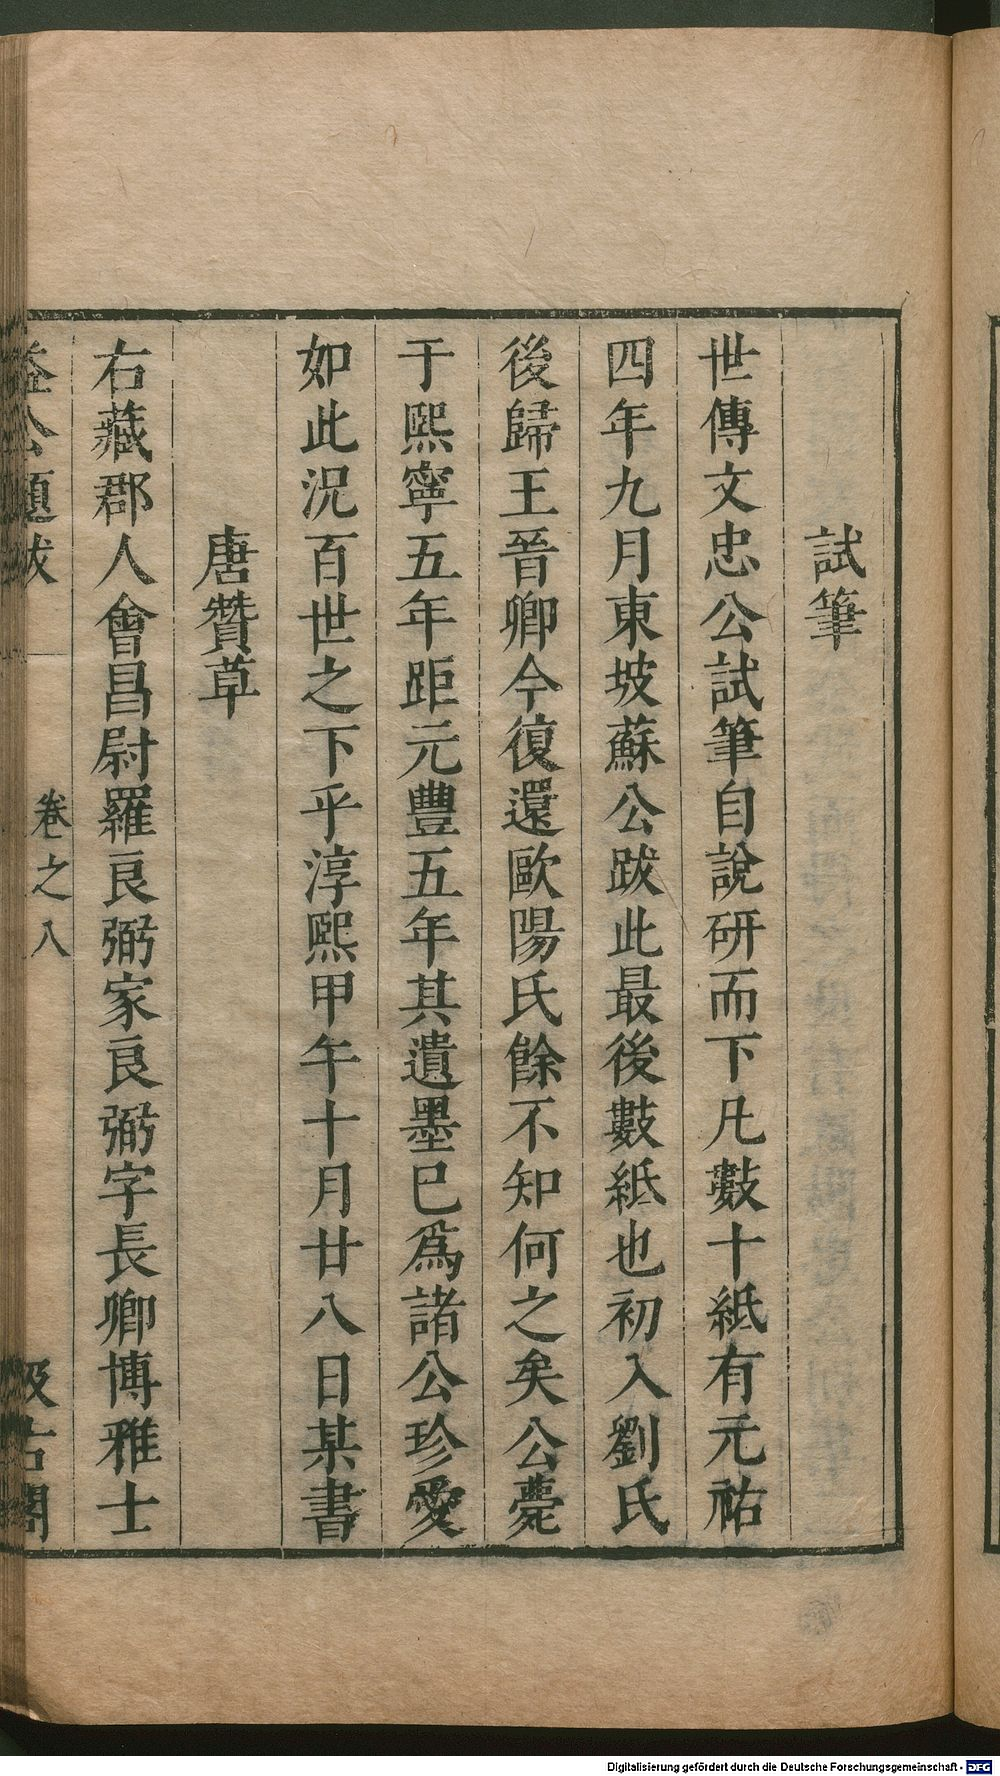 試筆
世傳文忠公試筆自說研而下凡數十紙有元祐
四年九月東坡蘇公跋此最後數紙也初入劉氏
後歸王晉卿今復還歐陽氏餘不知何之矣公薨
于熙寧五年距元豐五年其遺墨已爲諸公珍愛
如此況百世之下乎淳熙甲午十月廿八日某書
唐贊草
右藏郡人會昌尉羅良弼家良弼字長卿博雅士
益公題跋
卷之八
汲古閣
Digitalisierung gefördert durch die Deutsche Forschungsgemeinschaft - DFG